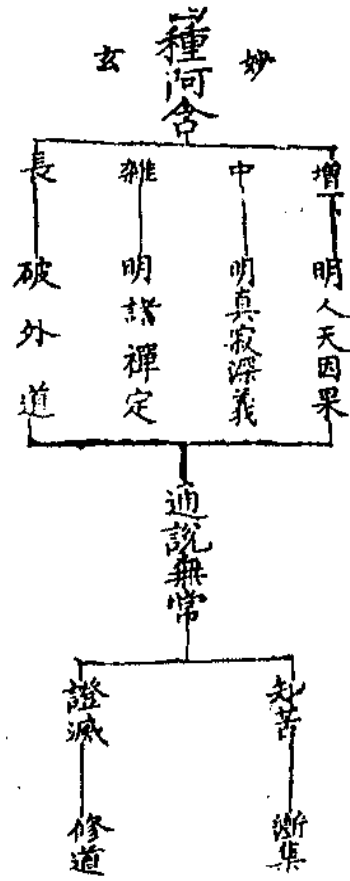 妙玄
四種阿含
增一
明人天因果
中
明真寂深義
雜
明諸禪定
長
破外道
通說無常
知苦
斷集
證滅
修道